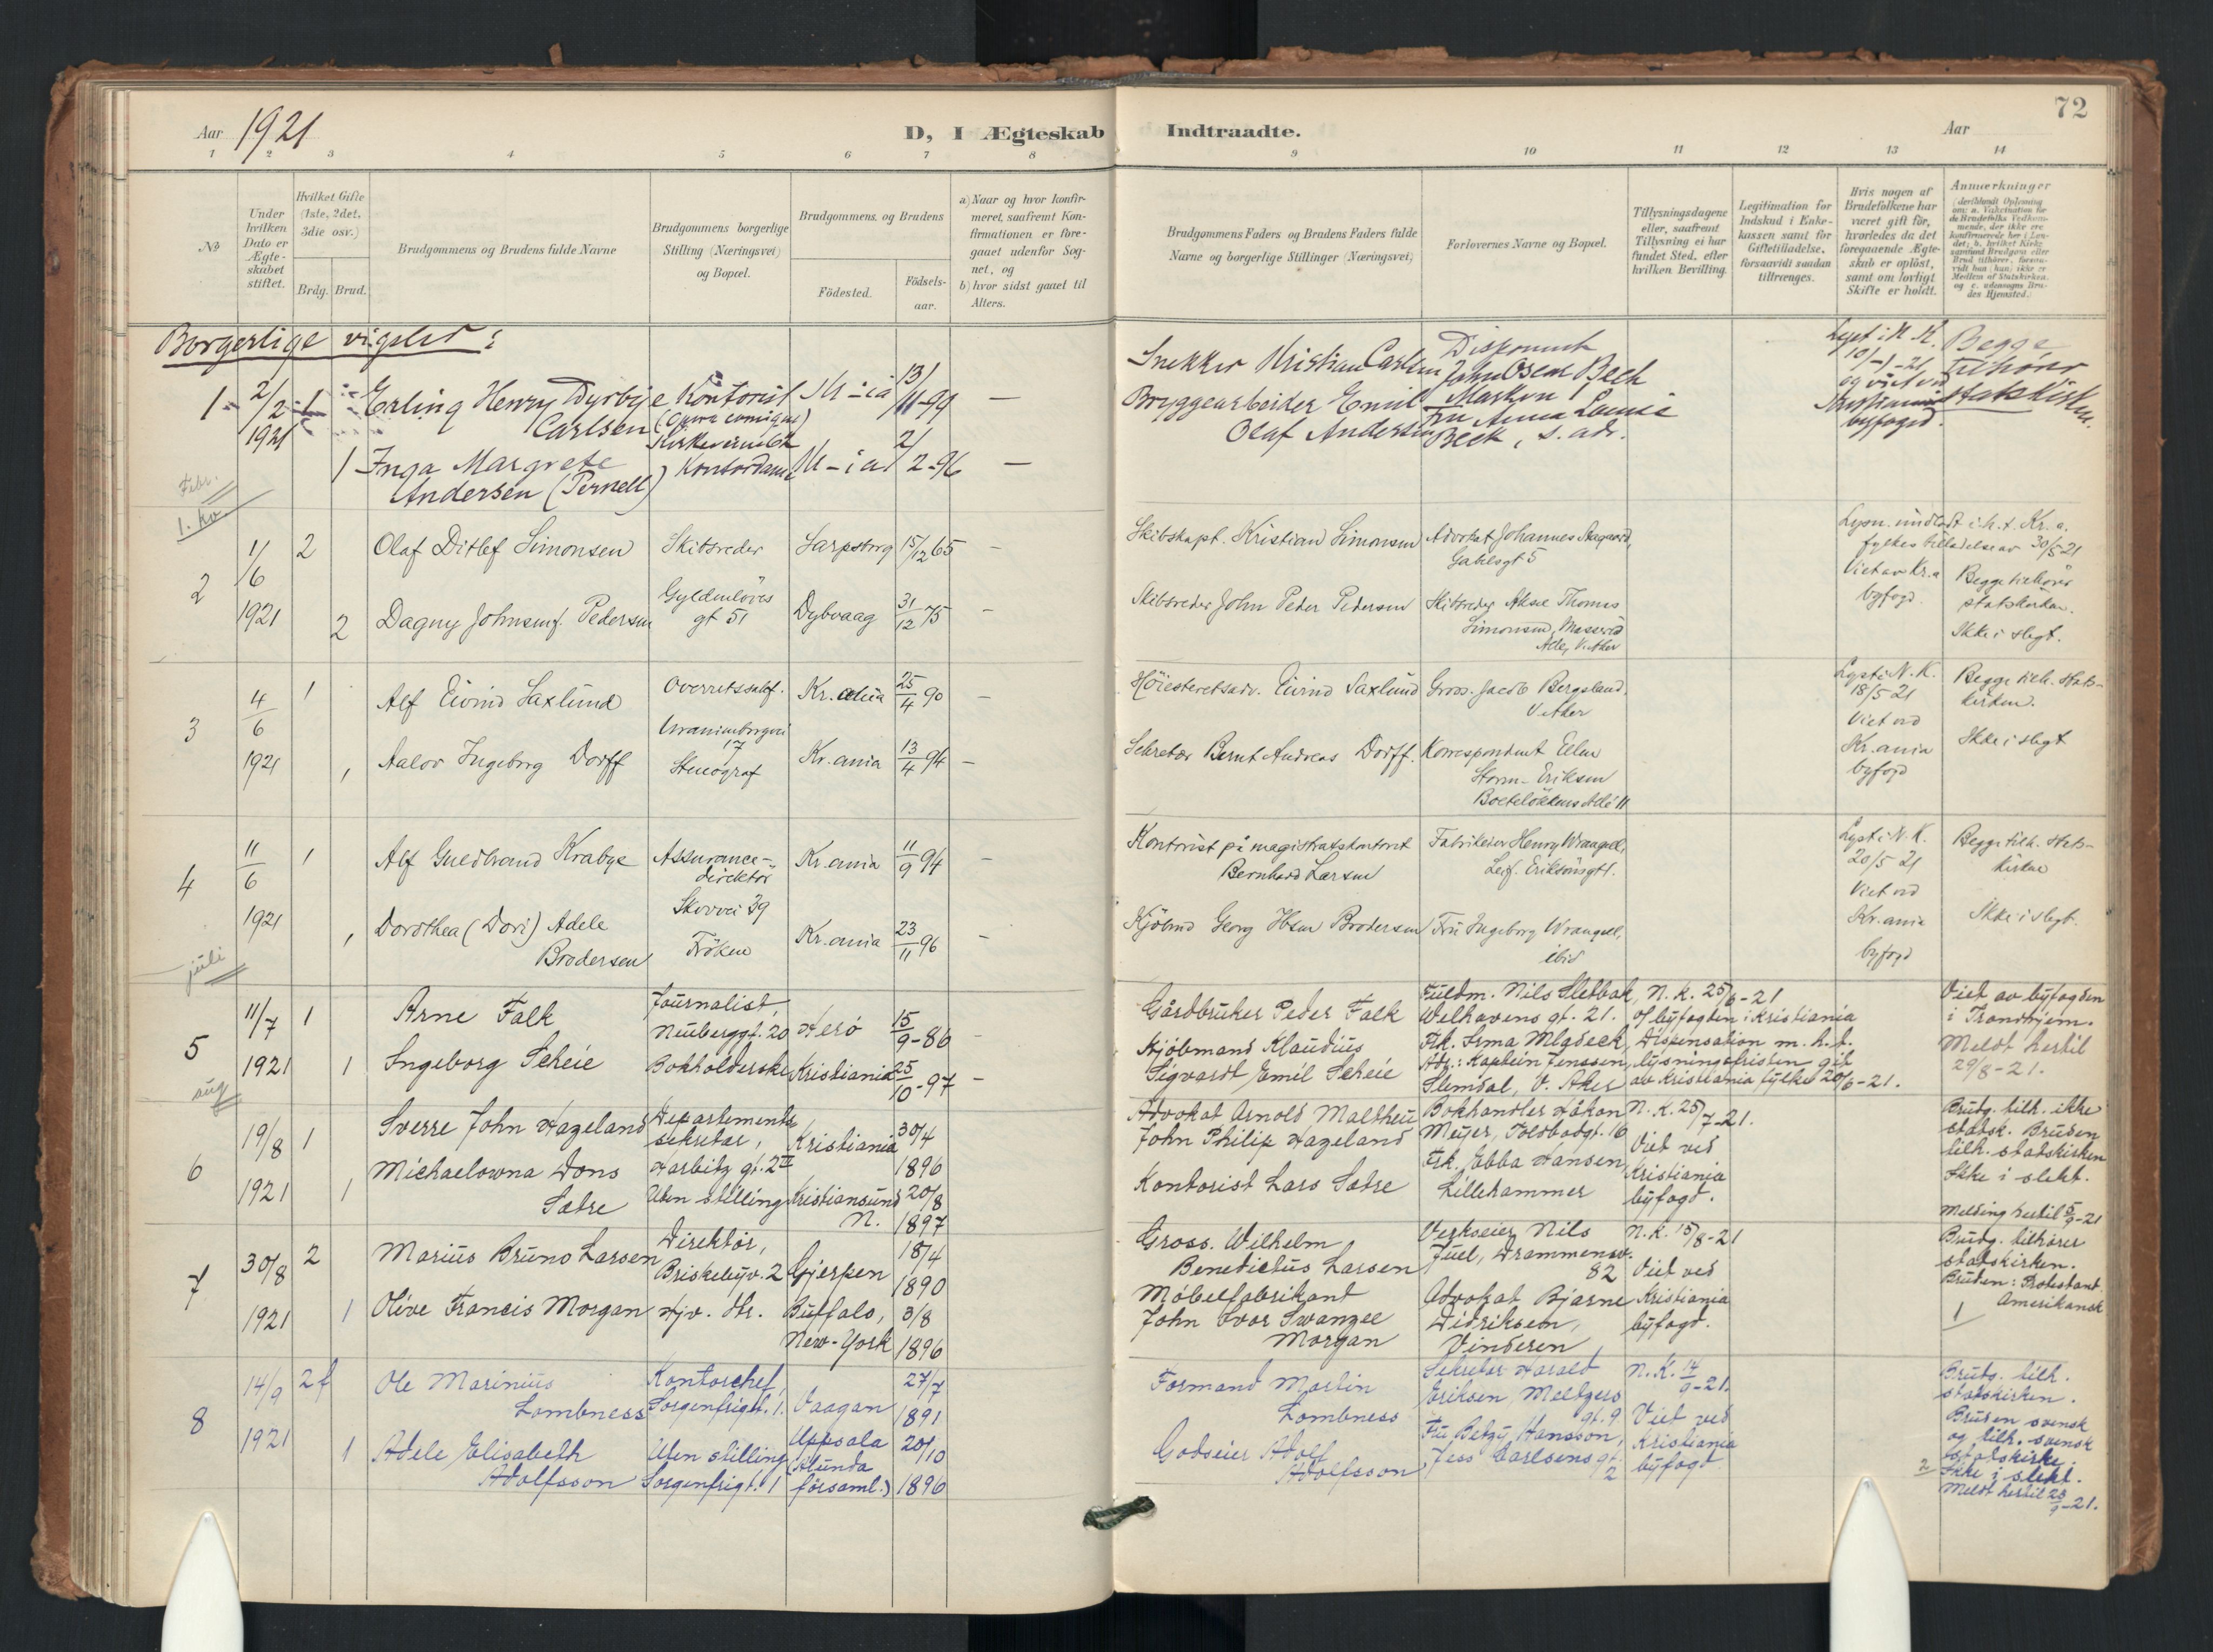 72
Aar 1921
D, I Ægteskab Indtraadte.
Aar
1 2 3 4 5 6 7 8 9 10 11 12 13 14
No
Under hvilken Dato er Ægteskabet stiftet.
Hvilket Gifte (1ste, 2det, 3die osv.)
Brdg. Brud.
Brudgommens og Brudens fulde Navne
Brudgommens borgerlige Stilling (Næringsvei) og Bopæl.
Brudgommens og Brudens
Födested.
Födsels-aar.
a) Naar og hvor konfirmeret, saafremt Konfirmationen er foregaaet udenfor Sognet, og
b) hvor sidst gaaet til Alters.
Brudgommens Faders og Brudens Faders fulde Navne og borgerlige Stillinger (Næringsvei)
Forlovernes Navne og Bopæl.
Tillysningsdagene eller, saafremt Tillysning ei har fundet Sted, efter hvilken Bevilling.
Legitimation for Indskud i Enkekassen samt for Giftetilladelse, forsaavidt saadan tiltrænges.
Hvis nogen af Brudefolkene har været gift för, hvorledes da det foregaaende Ægteskab er oplöst, samt om lovligt Skifte er holdt.
Anmerkninger
Borgerlige vigsler:
1 2/2 1921 1
Erling Henry Dyrbye Carlsen
Kontorist (Opera comique)
Kr-ia 13/11-99 —
Snekker Kristian Carlsen
Disponent John Oscar Beck
Lyst i N. K. 10/1-21 og viet ved Kristiania byfogd.
Begge tilhører statskirken.
1 Inga Margrete Andersen (Pernell)
Kontordame
Kr-ia 2/2-96 —
Bryggearbeider Emil Olaf Andersen
Fru Anna Louise Beck, s. adr.
Febr.
1. kv.
2 1/6 1921 2
Olaf Ditlef Simonsen
Skibsreder
Sarpsborg 15/12 65 —
Skibskapt. Kristian Simonsen
Advokat Johannes Aagaard, Gabelsgt 5
Lysn. undladt i h. t. Kr.a. fylkes tilladelse av 30/5 21
Viet av Kr.a byfogd
Begge tilhører statskirken.
Ikke i slegt.
2 Dagny Johnsen f. Pedersen
Gyldenløves gt 51
Dybvaag 31/12 75 —
Skibsreder John Peder Pedersen
Skibsreder Aksel Thomas Simonsen, V. Aker
3 4/6 1921 1
Alf Eivind Saxlund
Overretssakf.
Uranienborgvei 17
Kr.ania 25/4 90 —
Höiesteretsadv. Eivind Saxlund
Gross. Jacob Bergsland, V. Aker
Lyst i N. K. 18/5 21
Viet ved Kr.ania byfogd
Begge tilh. statskirken.
Ikke i slegt
1 Aalov Ingeborg Dorff
Stenograf
Kr.ania 13/4 94 —
Sekretær Bernt Andreas Dorff.
Korrespondent Ellen Storm-Eriksen
Bolteløkkens Allé 11
4 11/6 1921 1
Alf Guldbrand Krabye
Assurance-direktør
Skovvei 39
Kr.ania 11/9 94 —
Kontorist på magistratskontoret Bernhard Larsen
Fabrikeier Henry Wrangell, Leif Erikssønsgt 1.
Lyst i N. K. 20/5 21
Viet ved Kr.ania byfogd
Begge tilh. statskirken
Ikke i slegt.
1 Dorothea (Dori) Adele Brodersen
Frøken
Kr.ania 23/11 96 —
Kjøbmd Georg Ibsen Brodersen
Fru Ingeborg Wrangell, ibid
juli
5 11/7 1921 1
Arne Falk
Journalist, Neuberggt. 20
Herö 15/9-86 —
Gårdbruker Peder Falk
Fuldm. Nils Sletbak, Welhavens gt. 21.
N. K. 25/6-21 af byfogden i Kristiania
Dispensation m. h. t. lysningsfristen git av Kristiania fylke 20/6-21.
Viet av byfogden i Trondhjem.
Meldt hertil 29/8-21.
1 Ingeborg Scheie
Bokholderske
Kristiania 25/10-97 —
Kjöbmand Klaudius Sigvardt Emil Scheie
Frk. Irma Mladeck, Adr.: Kaptein Jenssen, Slemdal, V. Aker
aug
6 19/8 1921 1
Sverre John Hazeland
Departements sekretær, Harbitz gt. 2 II
Kristiania 30/4 1896
Advokat Arnold Maltheus John Philip Hazeland
Bokhandler Håkon Meyer, Toldbodgt. 16
N. K. 25/7-21.
Viet ved Kristiania byfogd.
Brudg. tilh. ikke statsk. Bruden tilh. statskirken
Ikke i slekt.
Melding hertil 5/9-21
1 Michaelowna Dons Satre
Uten stilling
Kristiansund N. 20/8 1897
Kontorist Lars Satre
Frk. Ebba Hansen, Lillehammer
7 30/8 1921 2
Marius Bruno Larsen
Direktör, Briskebyv. 2
Gjerpen 18/4 1890
Gross. Wilhelm Benedictus Larsen
Verkseier Nils Juel, Drammensv. 82
N. K. 15/8-21
Viet ved Kristiania byfogd.
Brudg. tilhører statskirken.
Bruden: Protestant. Amerikansk
1
1 Olive Francis Morgan
Hjv. Str.
Buffalo, New-York 3/8 1896
Möbelfabrikant John Ivor Swanzee Morgan
Advokat Bjarne Didriksen, Vinderen
8 14/9 1921 2 f
Ole Marinius Lombness
Kontorchef, Sorgenfrigt. 1.
Vaagan 27/7 1891
Formand Martin Lombness
Sekretær Harald Eriksen, Meltzers gt. 9
N. K. 14/9-21.
Viet ved Kristiania byfogd
Brudg. tilh. statskirken.
Bruden svensk og tilh. svensk statskirke.
2 Ikke i slekt.
Meldt hertil 23/9-21.
1 Adele Elisabeth Adolfsson
Uten stilling Sorgenfrigt. 1
Uppsala (Alunda församl.) 20/10 1896
Godseier Adolf Adolfsson
Fru Betzy Hansson, Jess Carlsens gt. 2